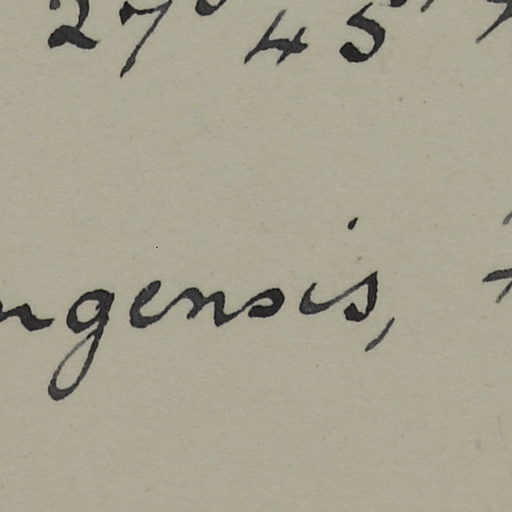 27° 45'
ngensis,